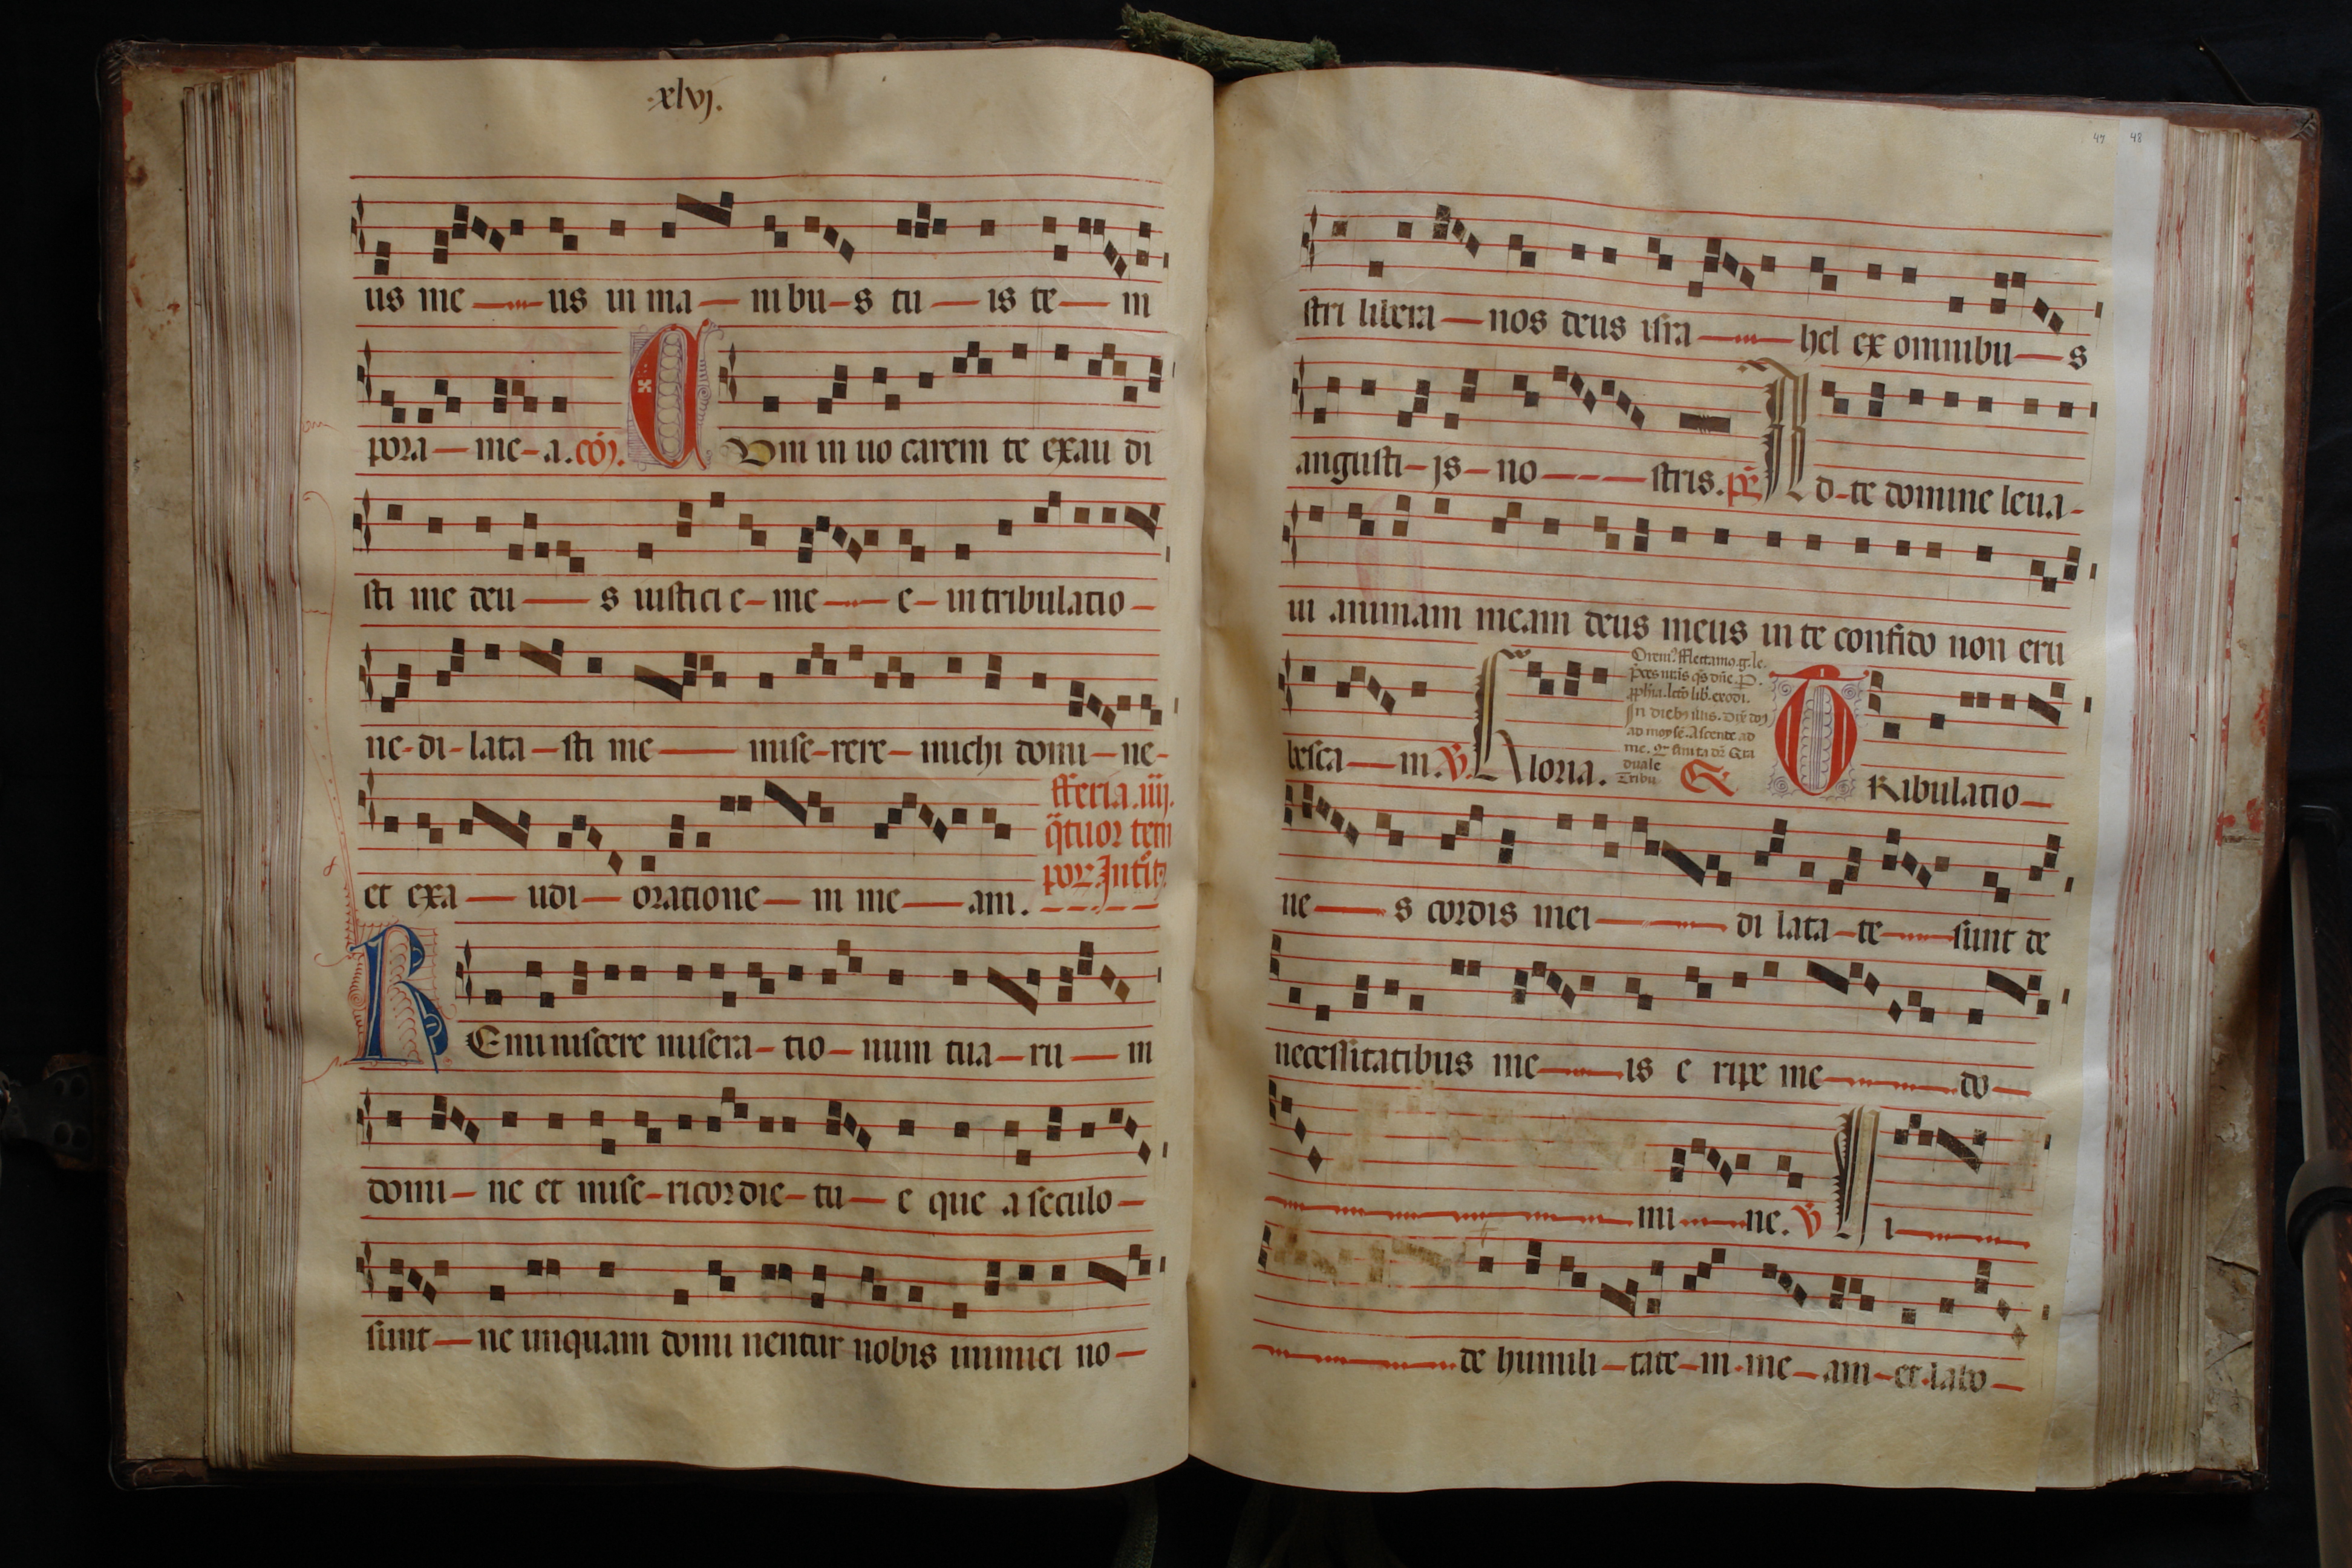 .xlvj.
us me — us in ma — nibu — s tu — is te — m
pora — me — a. cōj. Cum in uo carem te exau di
sti me deu — s iusticie — me — e — in tribulatio —
ne - di - lata — sti me — mise - rere — michi domi — ne -
et exa — udi — oratione — m me — am.
fferia .iiij.
q̄tuor tem
por Intͥt
REminiscere misera — tio — num tua — ru — m
domi — ne et mise — ricordie — tu — e que a seculo —
sunt — ne unquam domi nentur nobis inimici no —
47 48
stri libera — nos deus isra — hel ex omnibu — s
angusti — js — no — stris. ps̄ AD - te domine leua -
ui animam meam deus meus in te confido non eru
besca — m. v̄. Gloria.
Orem⁹. fflectamo. g. le.
p̄ces nr̄as qs̄ dn̄e. P.
In dieb⁹ illis. dix̄ dn̄s
ad moysē. Ascende ad
duale
Tribu
TRibulatio —
ne — s cordis mei — di lata — te — sunt de
necessitatibus me — is e ripe me — do —
mi — ne. v̄ Ui —
de humili — tate — m - me — am — et - labo —